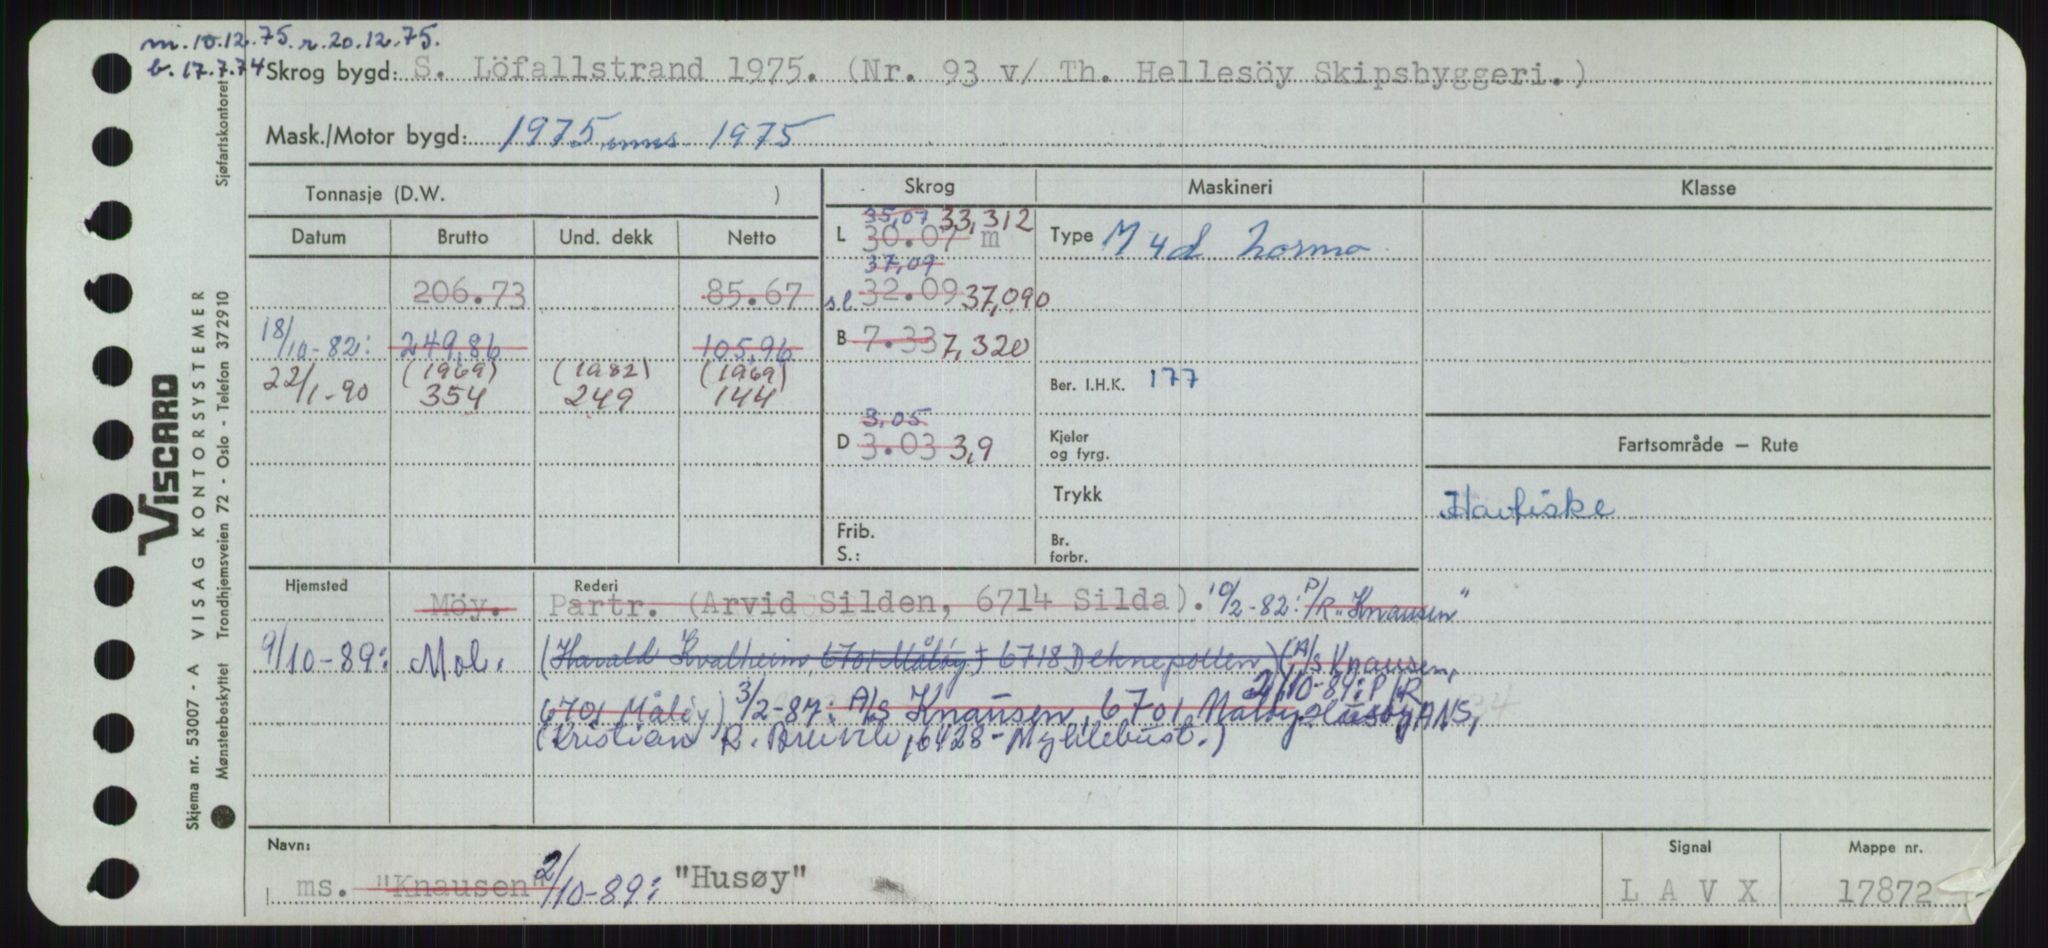 m. 10.12.75. r. 20.12.75.
b. 17.7.74
Skrog bygd: S. Löfallstrand 1975. (Nr. 93 v/ Th. Hellesöy Skipsbyggeri.)
Mask./Motor bygd: 1975, inns. 1975
Tonnasje (D.W. )
Skrog Maskineri Klasse
Datum Brutto Und. dekk Netto
35,07 33,312
L 30.07 m
Type M 4d
37,09
206.73 85.67
sl 32.09 37,090
18/10-82: 249,86 105,96
B 7.33 7,320
22/1-90 (1969) 354 (1982) 249 (1969) 144
Ber. I.H.K. 177
3,05
D 3.03 3,9
Kjeler og fyrg.
Fartsområde — Rute
Trykk
Havfiske
Frib.
S.:
Br. forbr.
Hjemsted Rederi
Möy. Partr. (Arvid Silden, 6714 Silda). 10/2-82: P/R "Knausen"
9/10-89: Mol. (Harald Kvalheim, 6701 Måløy, 6718 Deknepollen) (A/S Knausen,
2/10-89: P/R
6701 Måløy) 3/2-87: A/S Knausen, 6701 Måløy Husøy ANS,
(Kristian R. 6428 - Myklebust.)
Navn: Signal Mappe nr.
ms. "Knausen" 2/10-89: "Husøy" LAVX 17872
VISCARD
Skjema nr. 53007 - A VISAG KONTORSYSTEMER
Mønsterbeskyttet Trondhjemsveien 72 - Oslo - Telefon 372910
Sjøfartskontoret